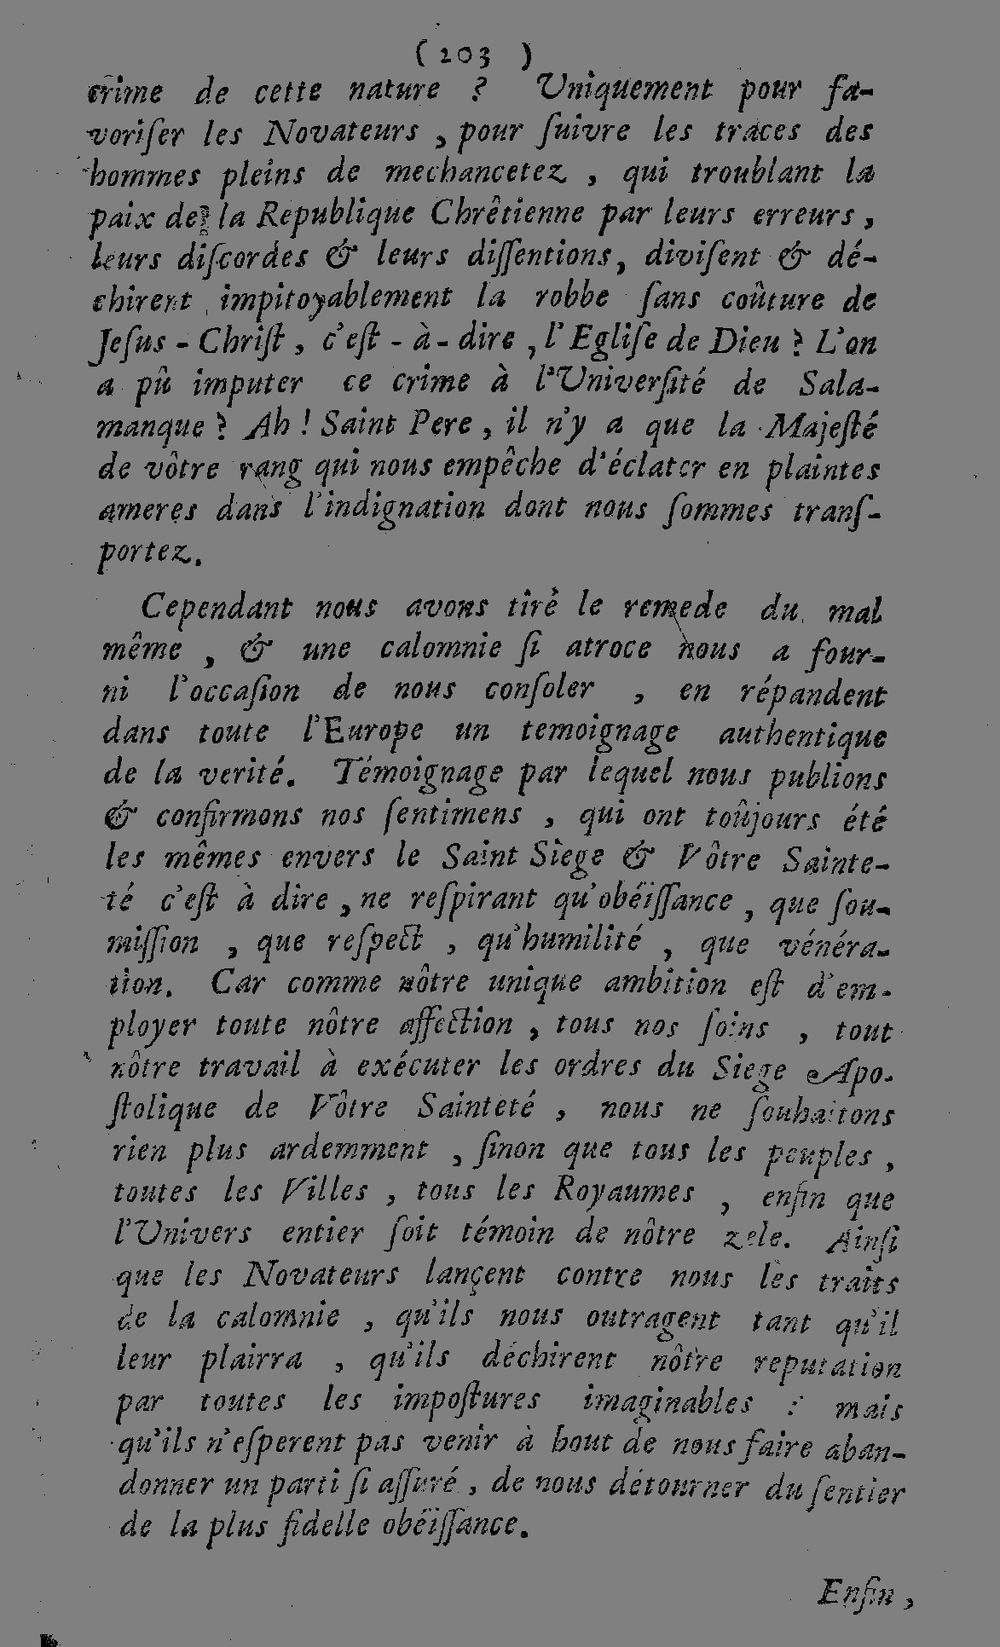 ( 203 )
crime de cette nature ? Uniquement pour fa-
voriſer les Novateurs , pour ſuivre les traces des
hommes pleins de mechancetez , qui troublant la
paix de la Republique Chrêtienne par leurs erreurs ,
leurs diſcordes & leurs diſſentions, diviſent & dé-
chirent impitoyablement la robbe ſans coûture de
Jeſus - Chriſt , c'eſt - à - dire , l'Egliſe de Dieu ? L'on
a pû imputer ce crime à l'Univerſité de Sala-
manque ? Ah ! Saint Pere , il n'y a que la Majeſté
de vôtre rang qui nous empêche d'éclater en plaintes
ameres dans l'indignation dont nous ſommes tranſ-
portez.
Cependant nous avons tiré le remede du mal
même , & une calomnie ſi atroce nous a four-
ni l'occaſion de nous conſoler , en répandent
dans toute l'Europe un temoignage authentique
de la verité. Témoignage par lequel nous publions
& confirmons nos ſentimens , qui ont toûjours été
les mêmes envers le Saint Siege & Vôtre Sainte-
té c'eſt à dire , ne reſpirant qu'obéïſſance , que ſou-
miſſion , que reſpect , qu'humilité , que vénéra-
tion. Car comme nôtre unique ambition eſt d'em-
ployer toute nôtre affection , tous nos ſoins , tout
nôtre travail à exécuter les ordres du Siege Apo-
ſtolique de Vôtre Sainteté , nous ne ſouhaitons
rien plus ardemment , ſinon que tous les peuples ,
toutes les Villes , tous les Royaumes , enfin que
l'Univers entier ſoit témoin de nôtre zele. Ainſi
que les Novateurs lançent contre nous les traits
de la calomnie , qu'ils nous outragent tant qu'il
leur plairra , qu'ils déchirent nôtre reputation
par toutes les impoſtures imaginables : mais
qu'ils n'eſperent pas venir à bout de nous faire aban-
donner un parti ſi aſſuré , de nous détourner du ſentier
de la plus fidelle obéïſſance.
Enfin ,